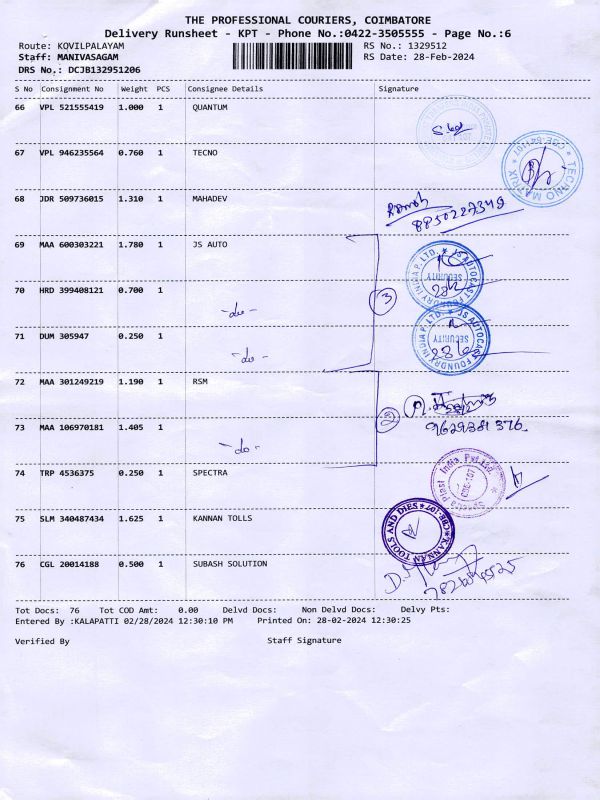 THE PROFESSIONAL COURIERS, COIMBATORE
Delivery Runsheet - KPT - Phone No.:0422-3505555 - Page No.:6
Route: KOVILPALAYAM RS No.: 1329512
Staff: MANIVASAGAM RS Date: 28-Feb-2024
DRS No.: DCJB132951206
S No Consignment No Weight PCS Consignee Details Signature
66 VPL 521555419 1.000 1 QUANTUM
67 VPL 946235564 0.760 1 TECNO
TECHNO MATRIX * CBE-641107 *
68 JDR 509736015 1.310 1 MAHADEV
8850227349
69 MAA 600303221 1.780 1 JS AUTO
JS AUTOCAST FOUNDRY INDIA P. LTD. * SECURITY
70 HRD 399408121 0.700 1 -do-
3
71 DUM 305947 0.250 1 -do-
JS AUTOCAST FOUNDRY INDIA P. LTD. * SECURITY
72 MAA 301249219 1.190 1 RSM
73 MAA 106970181 1.405 1 -do-
2
9629381376
74 TRP 4536375 0.250 1 SPECTRA
Spectra Plast India Pvt Ltd * CBE-107
75 SLM 340487434 1.625 1 KANNAN TOLLS
* KANNAN TOOLS AND DIES * CBE-107
76 CGL 20014188 0.500 1 SUBASH SOLUTION
Tot Docs: 76 Tot COD Amt: 0.00 Delvd Docs: Non Delvd Docs: Delvy Pts:
Entered By :KALAPATTI 02/28/2024 12:30:10 PM Printed On: 28-02-2024 12:30:25
Verified By Staff Signature